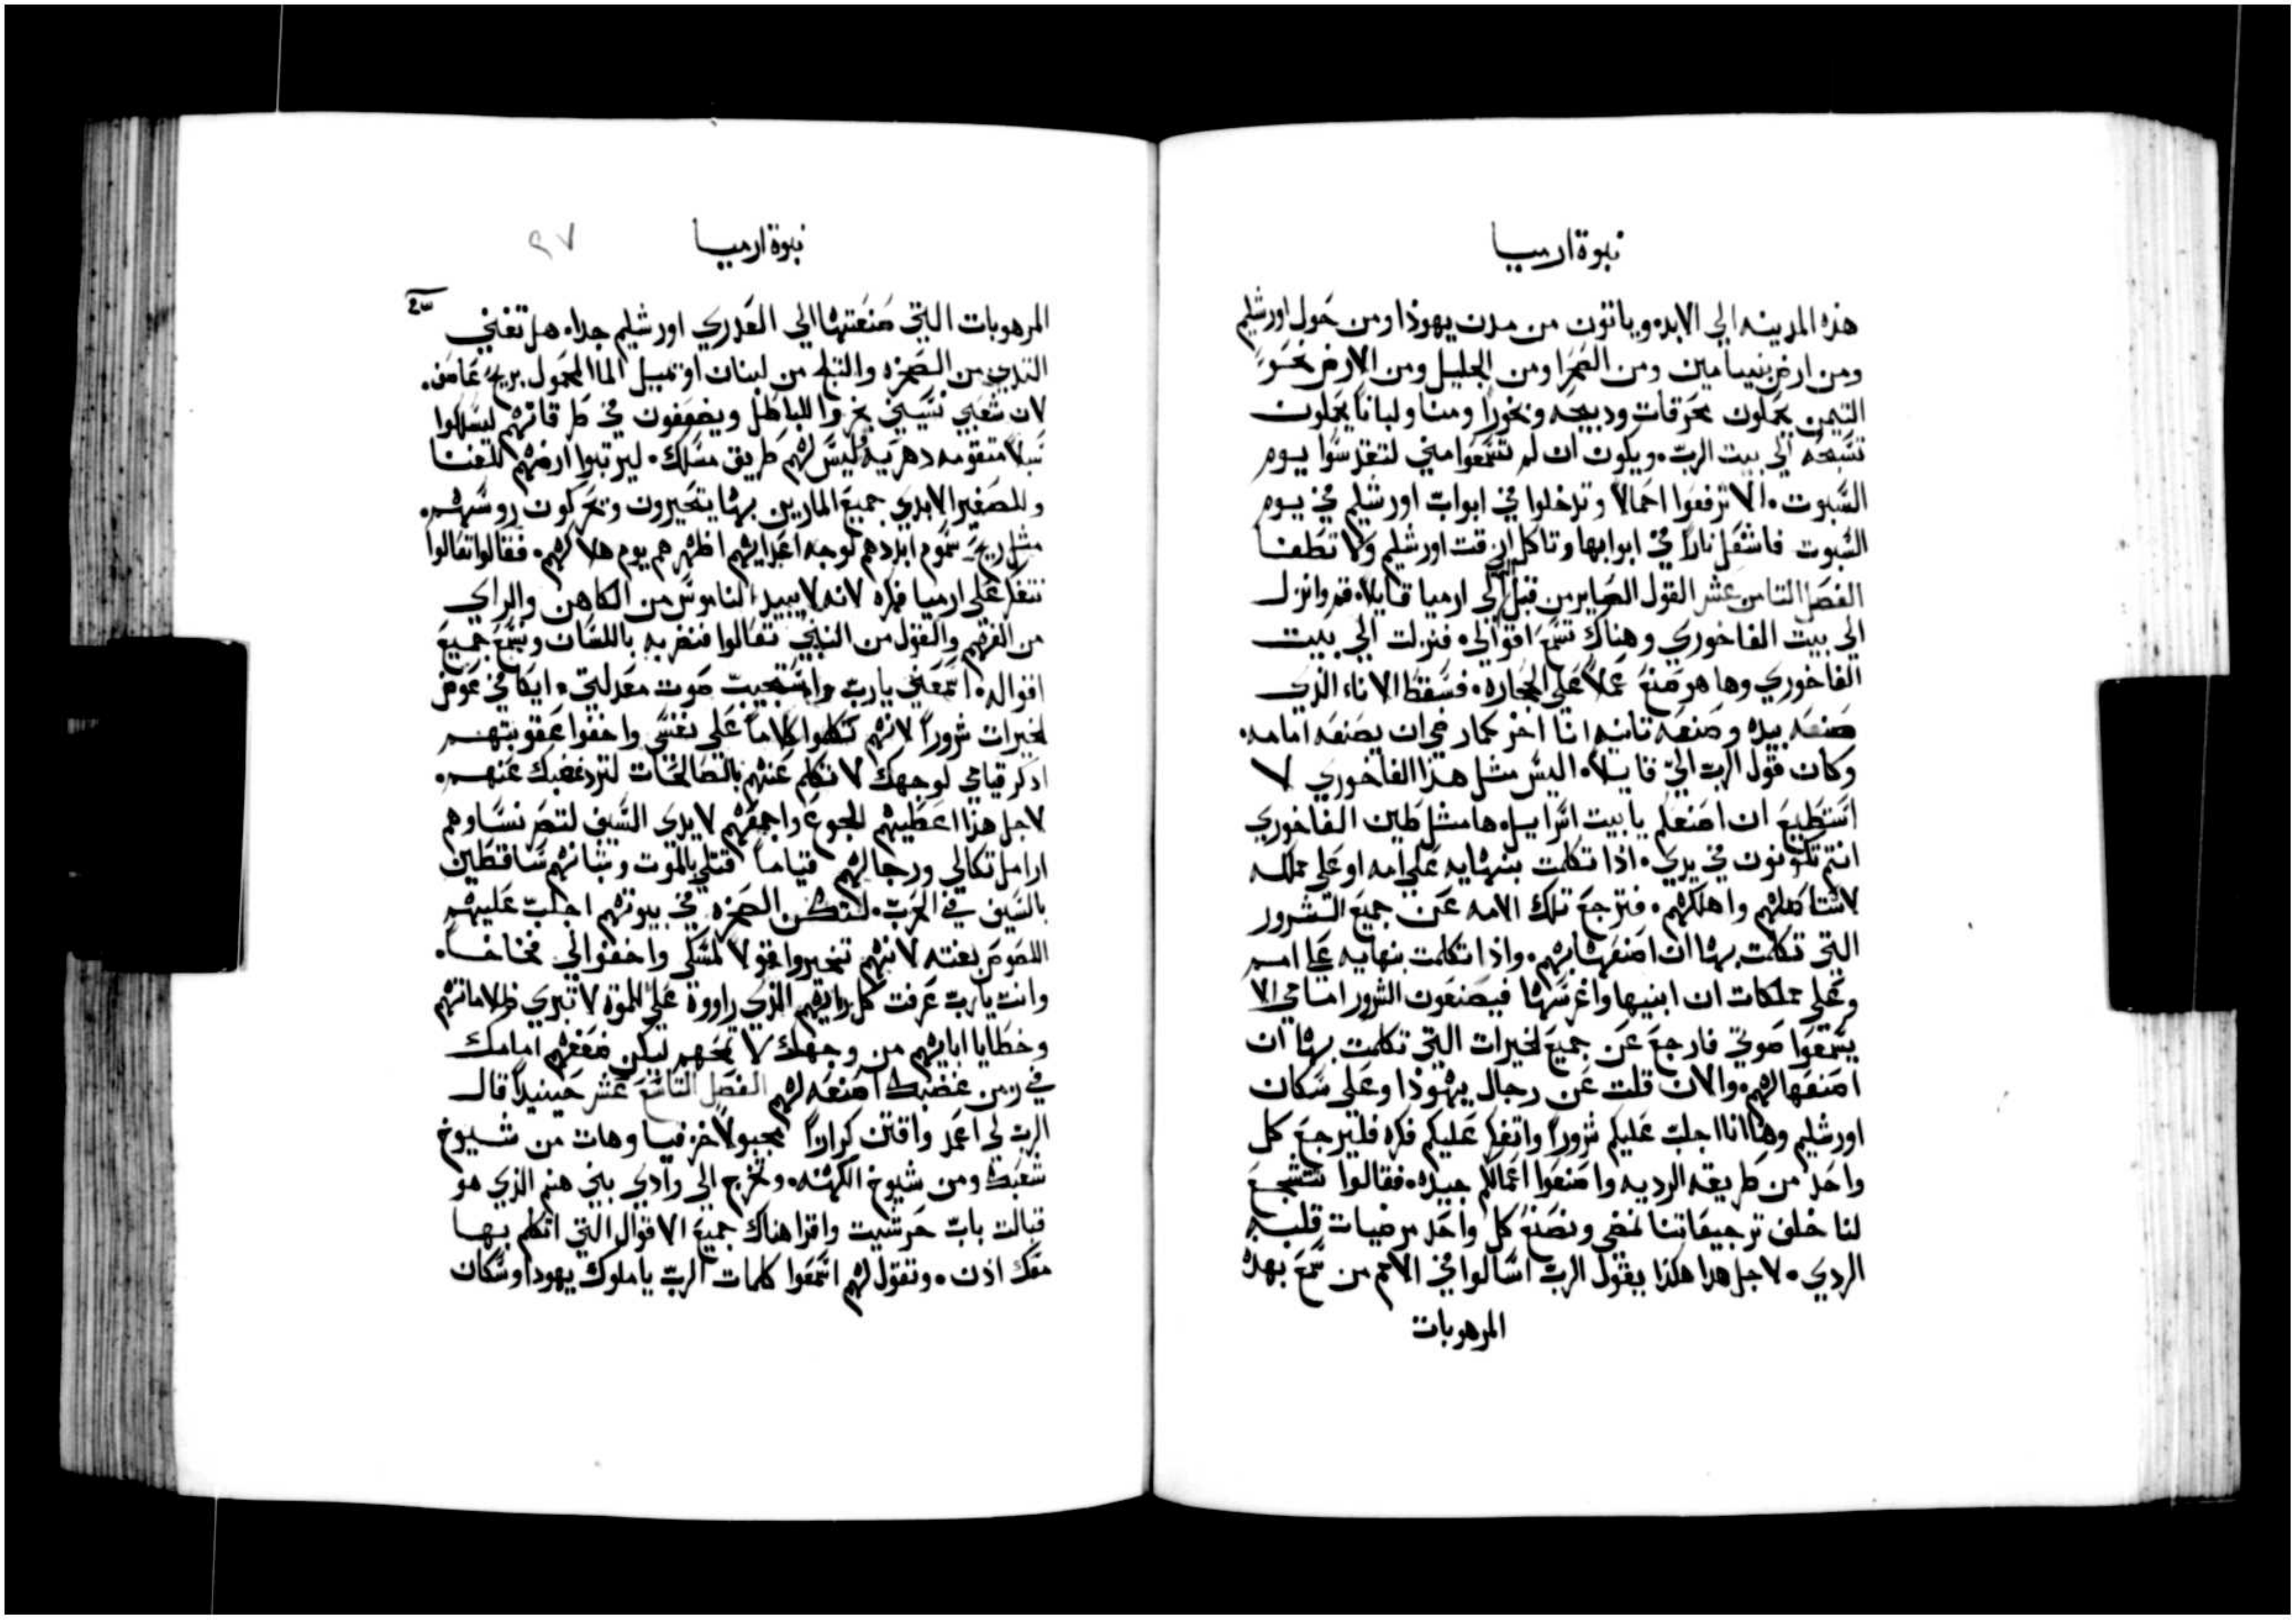 نبوة ارميا
هذه المدينه الي الابد. وياتون من مدن يهوذا ومن حول اورشليم
ومن ارض بنيامين ومن الصحرا ومن الجليل ومن الارض نحو
التيمن يحملون محرقات ودبيحه وبخورا ومنا ولبانا يحملون
تسبحه الي بيت الرب. ويكون ان لم تسمعوا مني لتقدسوا يوم
السبوت. الا ترفعوا احمالا وتدخلوا في ابواب اورشليم في يوم
السبوت فاشعل نارا في ابوابها وتاكل ازقت اورشليم ولا تطفا
الفصل التامن عشر القول الصاير من قبل الي ارميا قايلا. قم وانزل
الي بيت الفاخوري وهناك تسمع اقوالي. فنزلت الي بيت
الفاخوري وها هو صنع عملا علي الحجاره. فسقط الاناء الذي
صنعه بيده وصنعه تانيه انا اخر كمار ضي ان يصنعه امامه.
وكان قول الرب الي قايلا. اليس مثل هذا الفاخوري لا
استطيع ان اصنعكم يا بيت اسراييل. ها مثل طين الفاخوري
انتم تكونون في يدي. اذا تكلمت بنهايه علي امه او علي مملكه
لاستاصلهم واهلكهم. فترجع تلك الامه عن جميع الشرور
التي تكلمت بها ان اصنعها بهم. واذا تكلمت بنهايه علي امم
وعلي مملكات ان ابنيها واغرسها فيصنعون الشرور امامي الا
يسمعوا صوتي فارجع عن جميع الخيرات التي تكلمت بها ان
اصنعها لهم. والان قلت عن رجال يهوذا وعلي سكان
اورشليم وها انا اجلب عليكم شرورا واتفكر عليكم فكره فليرجع كل
واحد من طريقه الرديه واصنعوا اعمالكم جيده. فقالوا نتشجع
لنا خلف ترجيعاتنا نمضي ونصنع كل واحد مرضيات قلبه
الردي. لاجل هدا هكذا يقول الرب اسالوا في الامم من سمع بهده
المرهوبات
نبوة ارميا
٩٧
المرهوبات التي صنعتها الي العدري اورشليم جدا. هل تفني
الثدي من الصخره والثلج من لبنان او تميل الما المحمول بريح عاصف.
لان شعبي نسيني بخروا للباطل ويضعفون في طرقاتهم ليسلكوا
سبلا متقومه دهريه ليس لهم طريق مسلك. ليرتبوا ارضهم للفنا
وللصفير الابدي جميع المارين بها يتحيرون وتحركون روسهم.
مثل ريح سموم ابددهم لوجه اعدايهم اظهرهم يوم هلاكهم. فقالوا تعالوا
نتفكر علي ارميا فكره لانه لا يبيد الناموس من الكاهن والراي
من الفهم والقول من النبي تعالوا فنضربه باللسان ونسمع جميع
اقواله. اسمعني يا رب واستجيب صوت معدلتي. ايكافي عوض
الخيرات شرورا لانهم تكلموا كلاما علي نفسي واخفوا عقوبتهم
ادكر قيامي لوجهك لاتكلم عنهم بالصالحات لترد غضبك عنهم.
لاجل هذا اعطيهم للجوع واجمعهم لايدي السيف لتصر نساوهم
ارامل تكالي ورجالهم فتياما قتلي بالموت وشبانهم ساقطين
بالسيف في الحرب. لتكن الصخره في بيوتهم اجلب عليهم
اللصوص بغته لانهم تخيروا قولا لمسكي واخفوا لي فخاخا.
وانت يارب عرفت كل رايهم الذي راووة علي للموة لا تبري ظلاماتهم
وخطايا ابايهم من وجهك لا تمحهم ليكن ضعفهم امامك
في زمن غضبك اصنعه لهم الفصل التاسع عشر حينيدا قال
الرب لي اعمد واقتن كرازا مجبولا خزفيا وهات من شيوخ
شعبك ومن شيوخ الكهنه. وتخرج الي وادي بني هنم الذي هو
قبالت باب حرشيت واقرا هناك جميع الاقوال التي اتكلم بها
معك اذن. وتقول لهم اسمعوا كلمات الرب يا ملوك يهودا وسكان